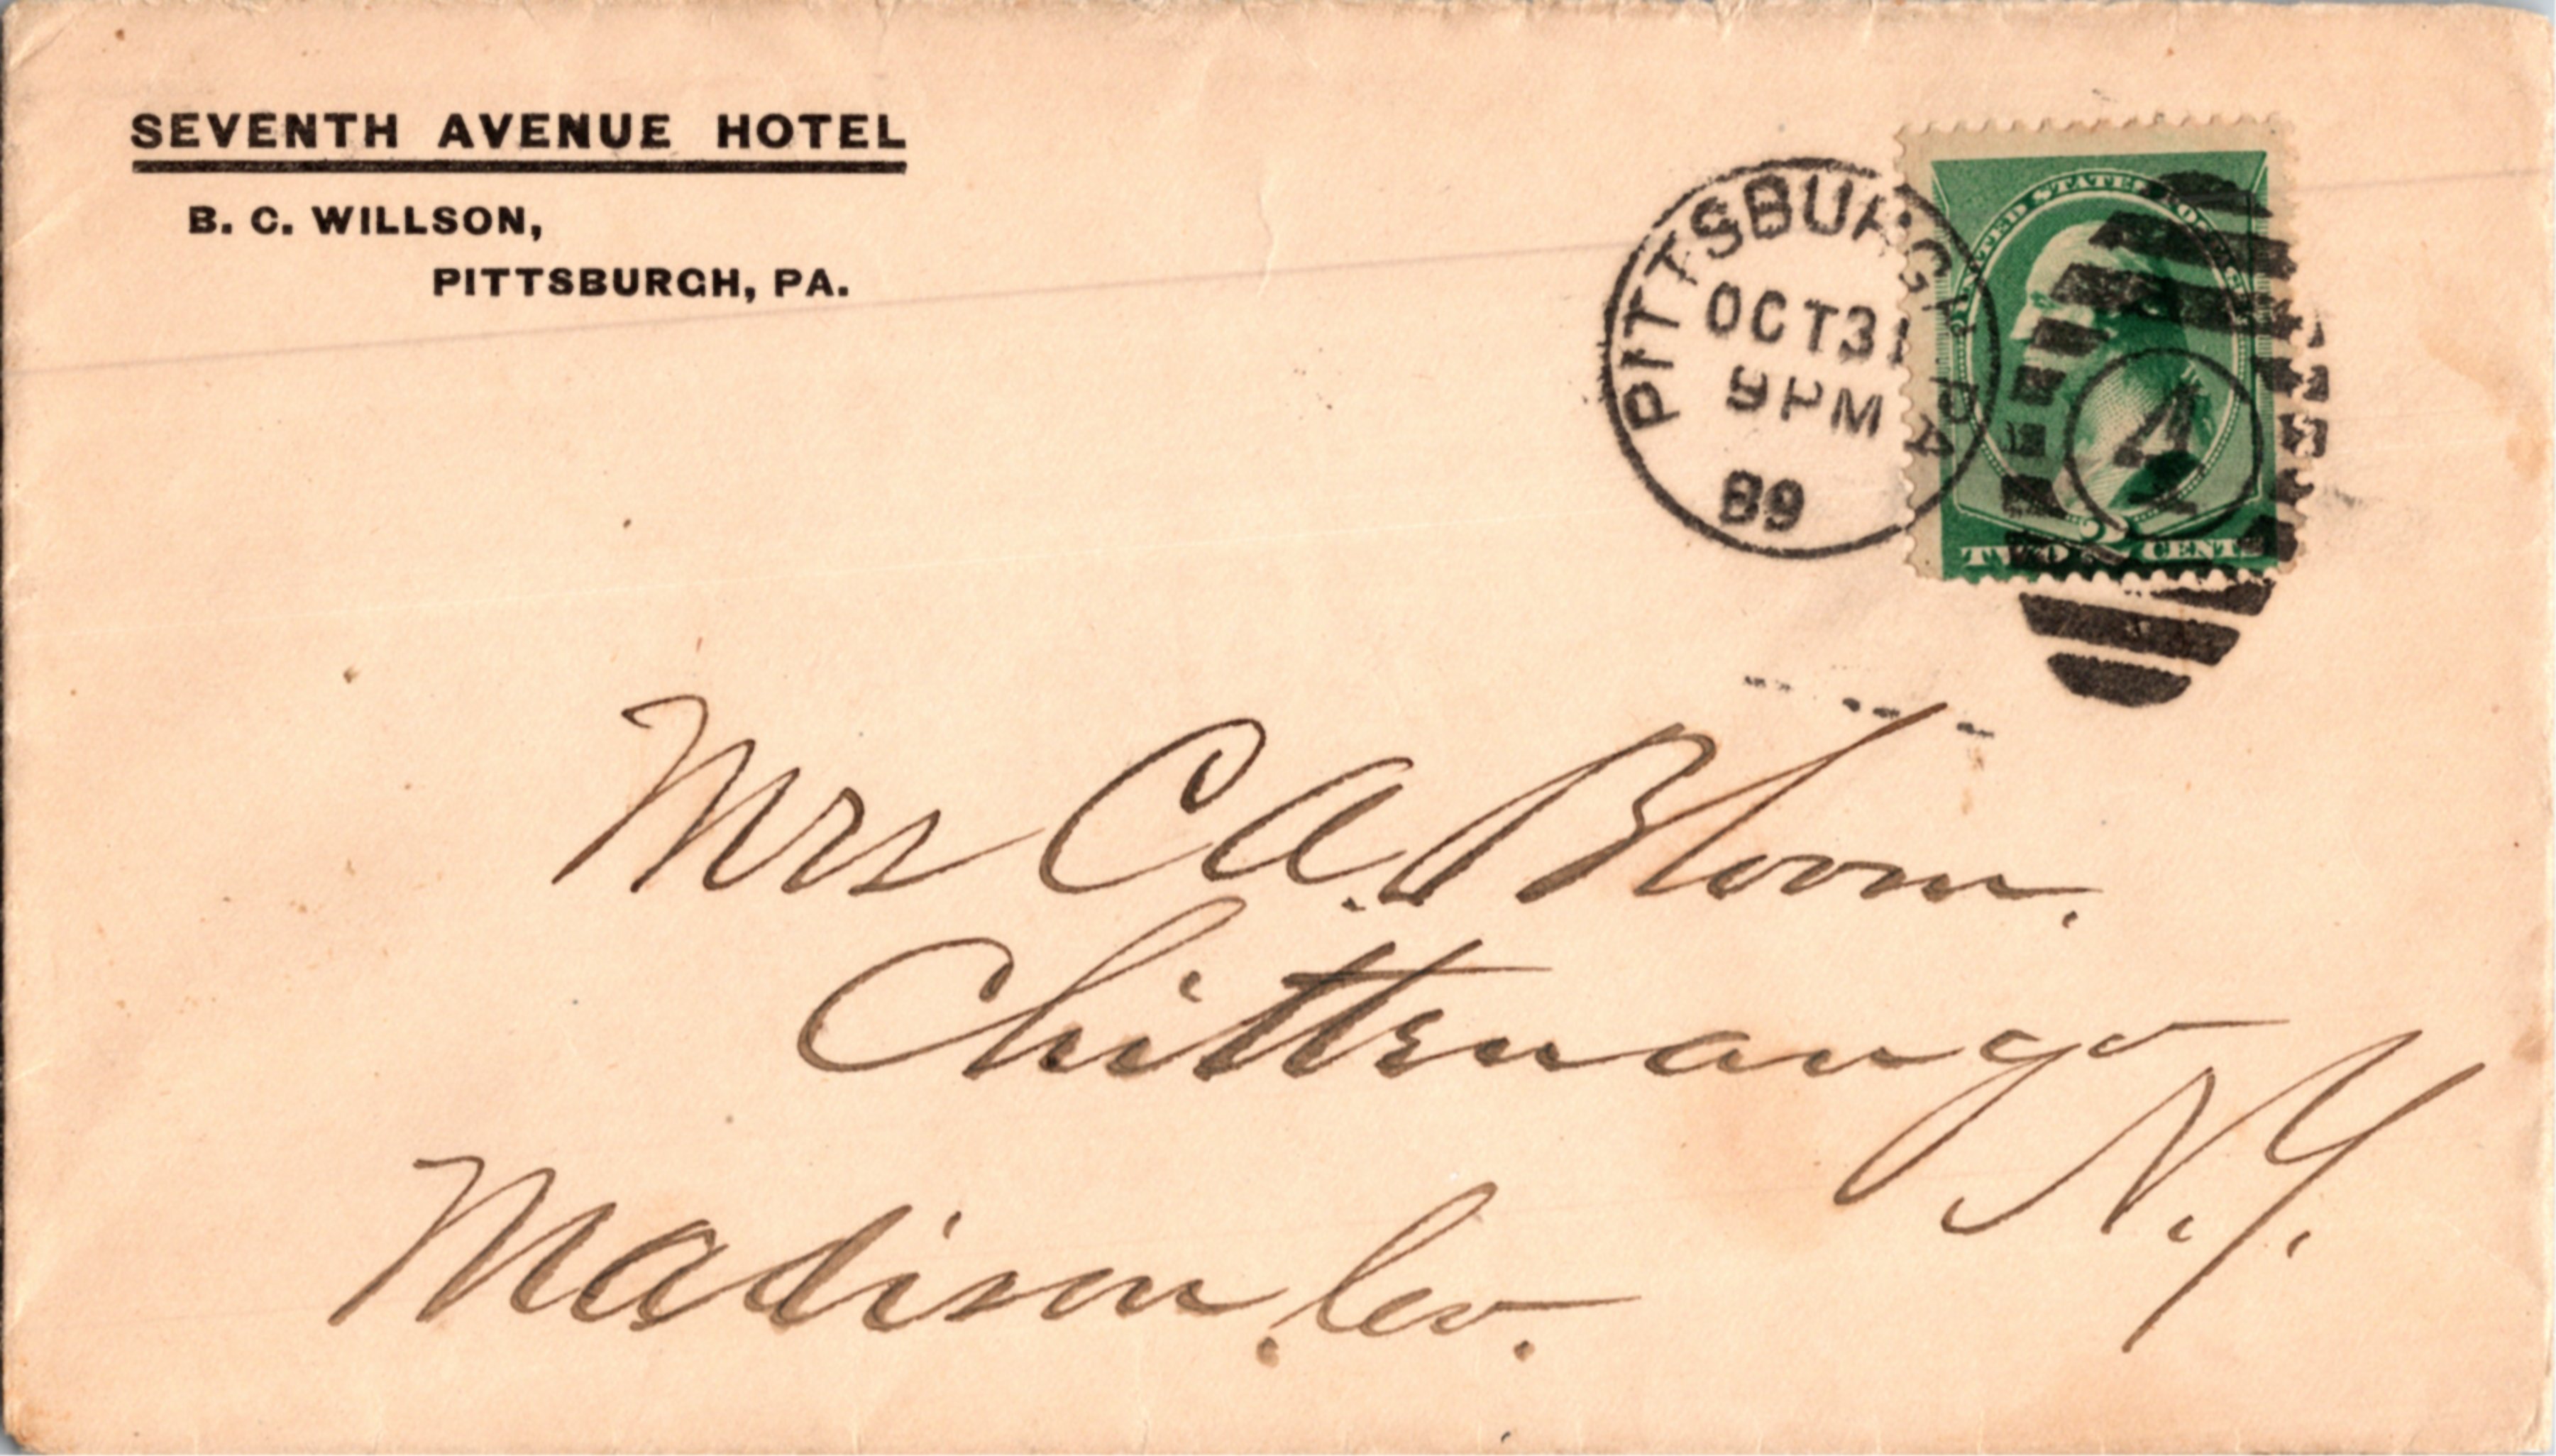 SEVENTH AVENUE HOTEL
B. C. WILLSON,
PITTSBURGH, PA.
PITTSBURGH PA
OCT 31
9 PM
89
UNITED STATES POSTAGE
4
TWO CENTS
Mrs C A. Bloom.
Chittenango
N.Y.
Madison. Co.